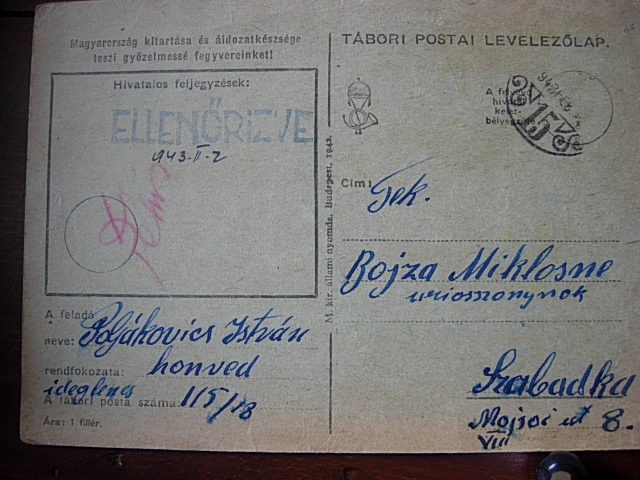 Magyarország kitartása és áldozatkészsége
teszi győzelmessé fegyvereinket!
Hivatalos feljegyzések:
ELLENŐRIZVE
943-II-2
A feladó
neve: Poljákovics István
rendfokozata: honved
ideglenes
A tábori posta száma: 115/18
Ára: 1 fillér.
M. kir. állami nyomda, Budapest, 1942.
TÁBORI POSTAI LEVELEZŐLAP.
A fel
hiva
kelet-
bélyegzője
943
15
Cim:
Tek.
Bojza Miklosne
uriosszonynok
Szabadka
Mojsoi ut 8.
VIII